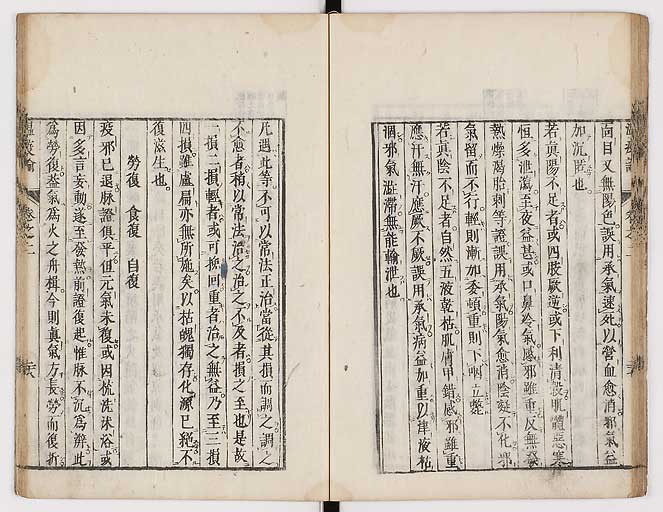 面目又無陽色誤用承氣速死以營血愈消邪氣益
加沉匿也
若眞陽不足者或四肢厥逆或下利清穀肌體惡寒
恒多泄瀉至夜益甚或口鼻冷氣感邪雖重反無發
熱燥渴胎刺等證誤用承氣陽氣愈消陰凝不化邪
氣留而不行輕則漸加委頓重則下咽立斃
若眞陰不足者自然五液乾枯肌膚甲錯感邪雖重
應汗無汗應厥不厥誤用承氣病益加重以津液枯
涸邪氣澁滯無能輸泄也
凡遇此等不可以常法正治當從其損而調之調之
不愈者稍以常法治之治之不及者損之至也是故
一損二損輕者或可挽回重者治之無益乃至三損
四損雖盧扁亦無所施矣以枯魄獨存化源已絕不
復滋生也
勞復 食復 自復
疫邪已退脉證俱平但元氣未復或因梳洗沐浴或
因多言妄動遂至發熱前證復起惟脉不沉爲辨此
爲勞復蓋氣爲火之舟楫今則眞氣方長勞而復折
卷之二